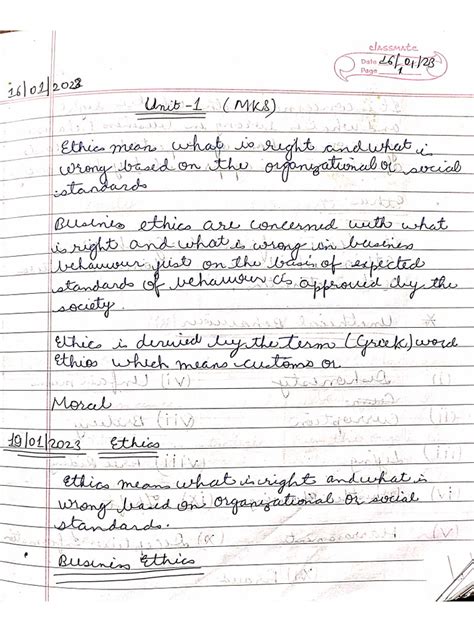 classmate
Date 16/01/23
Page 1
16/01/2023
Unit-1 (MKS)
Ethics mean what is right and what is
wrong based on the organizational or social
standards
Business ethics are concerned with what
is right and what is wrong in busines
behaviour just on the basis of expected
standards of behaviour as approved by the
society.
Ethics is derived by the term (Greek) word
Ethios which means customs or
Moral
19/01/2023 Ethics
Ethics means what is right and what is
wrong based on organizational or social
standards.
Business Ethics